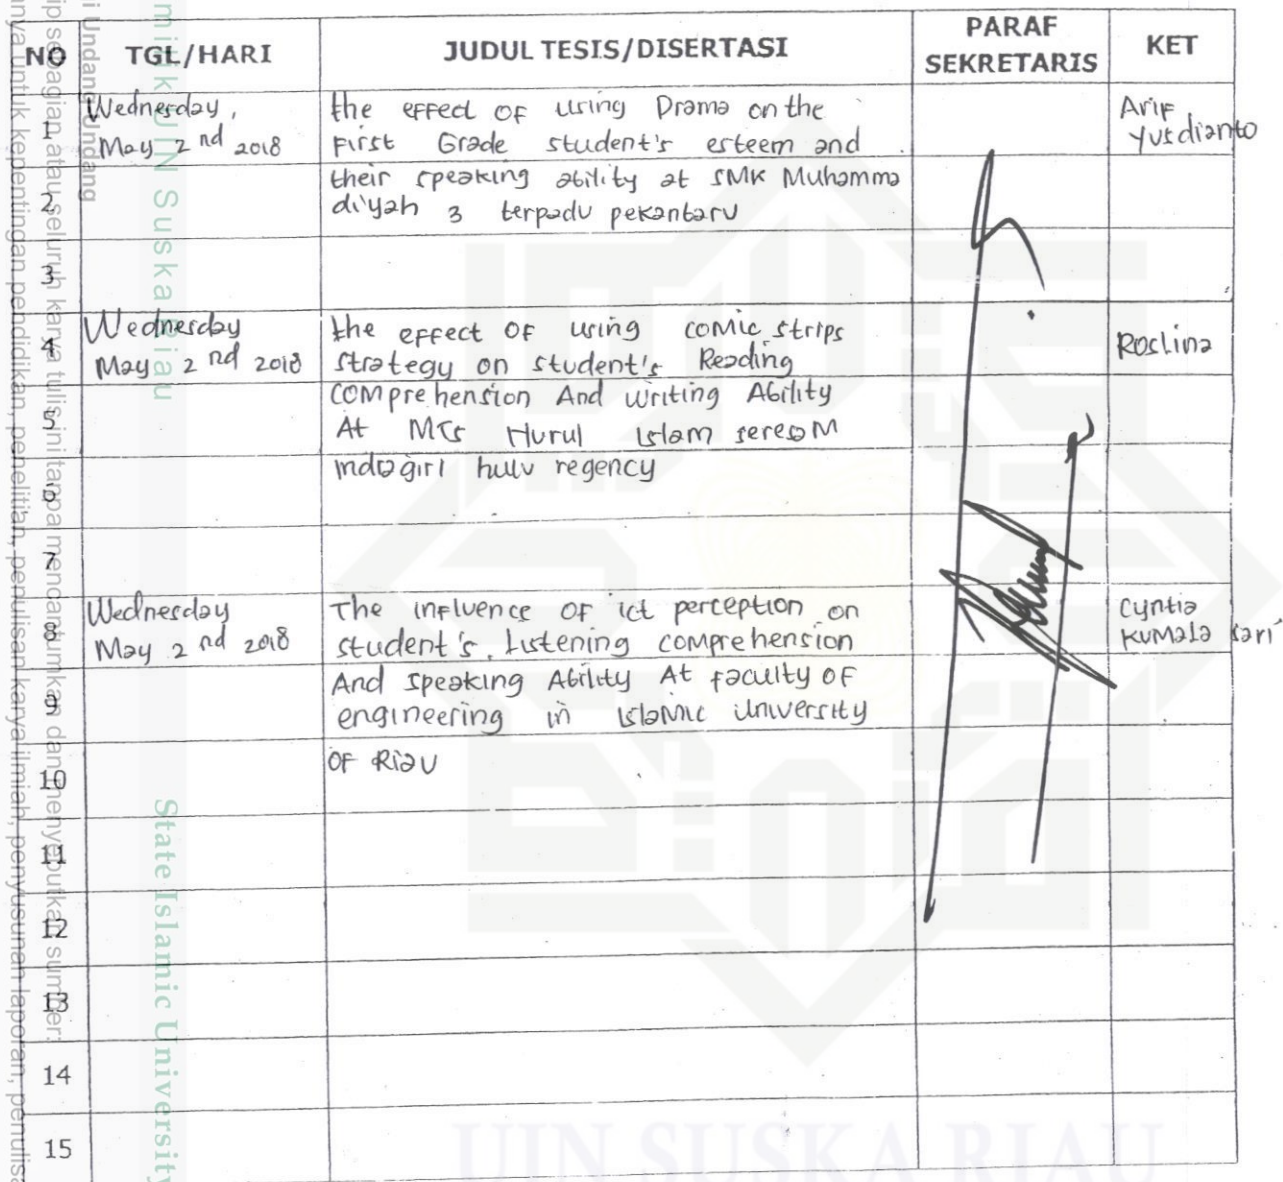 NO TGL/HARI JUDUL TESIS/DISERTASI PARAF SEKRETARIS KET
1 Wednesday, the effect of using Drama on the Arif
May 2 nd 2018 First Grade student's esteem and Yusdianto
2 their speaking ability at SMK Muhamma
diyah 3 terpadu pekanbaru
3
4 Wednesday the effect of using comic strips Roslina
May 2 nd 2018 strategy on student's Reading
5 comprehension And writing Ability
At MTs Nurul Islam seresam
6 indragiri hulu regency
7
8 Wednesday The influence of ict perception on Cyntia
May 2 nd 2018 student's. Listening comprehension kumala sari
9 And speaking Ability At faculty of
engineering in islamic university
10 of Riau
11
12
13
14
15
milik UIN Suska Riau
State Islamic University
i Undang-Undang
ip sebagian atau seluruh karya tulis ini tanpa mencantumkan dan menyebutkan sumber:
anya untuk kepentingan pendidikan, penelitian, penulisan karya ilmiah, penyusunan laporan, penulisa
UIN SUSKA RIAU